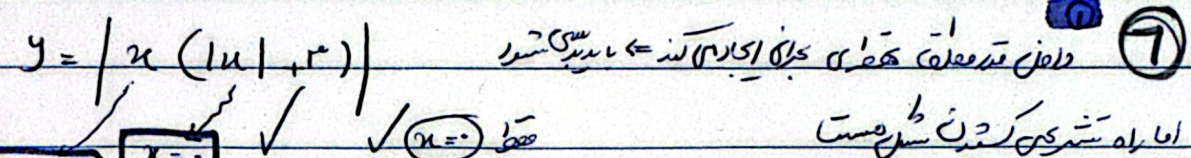 ۶ داخل قدر مطلق نقطه‌ای بحرانی ایجاد می‌کند => باید بررسی شود
y = | x (|x| + ۳) |
اما راه تشریحی کشیدن شکل هست
فقط x=۰ ✓ ✓
x=۰